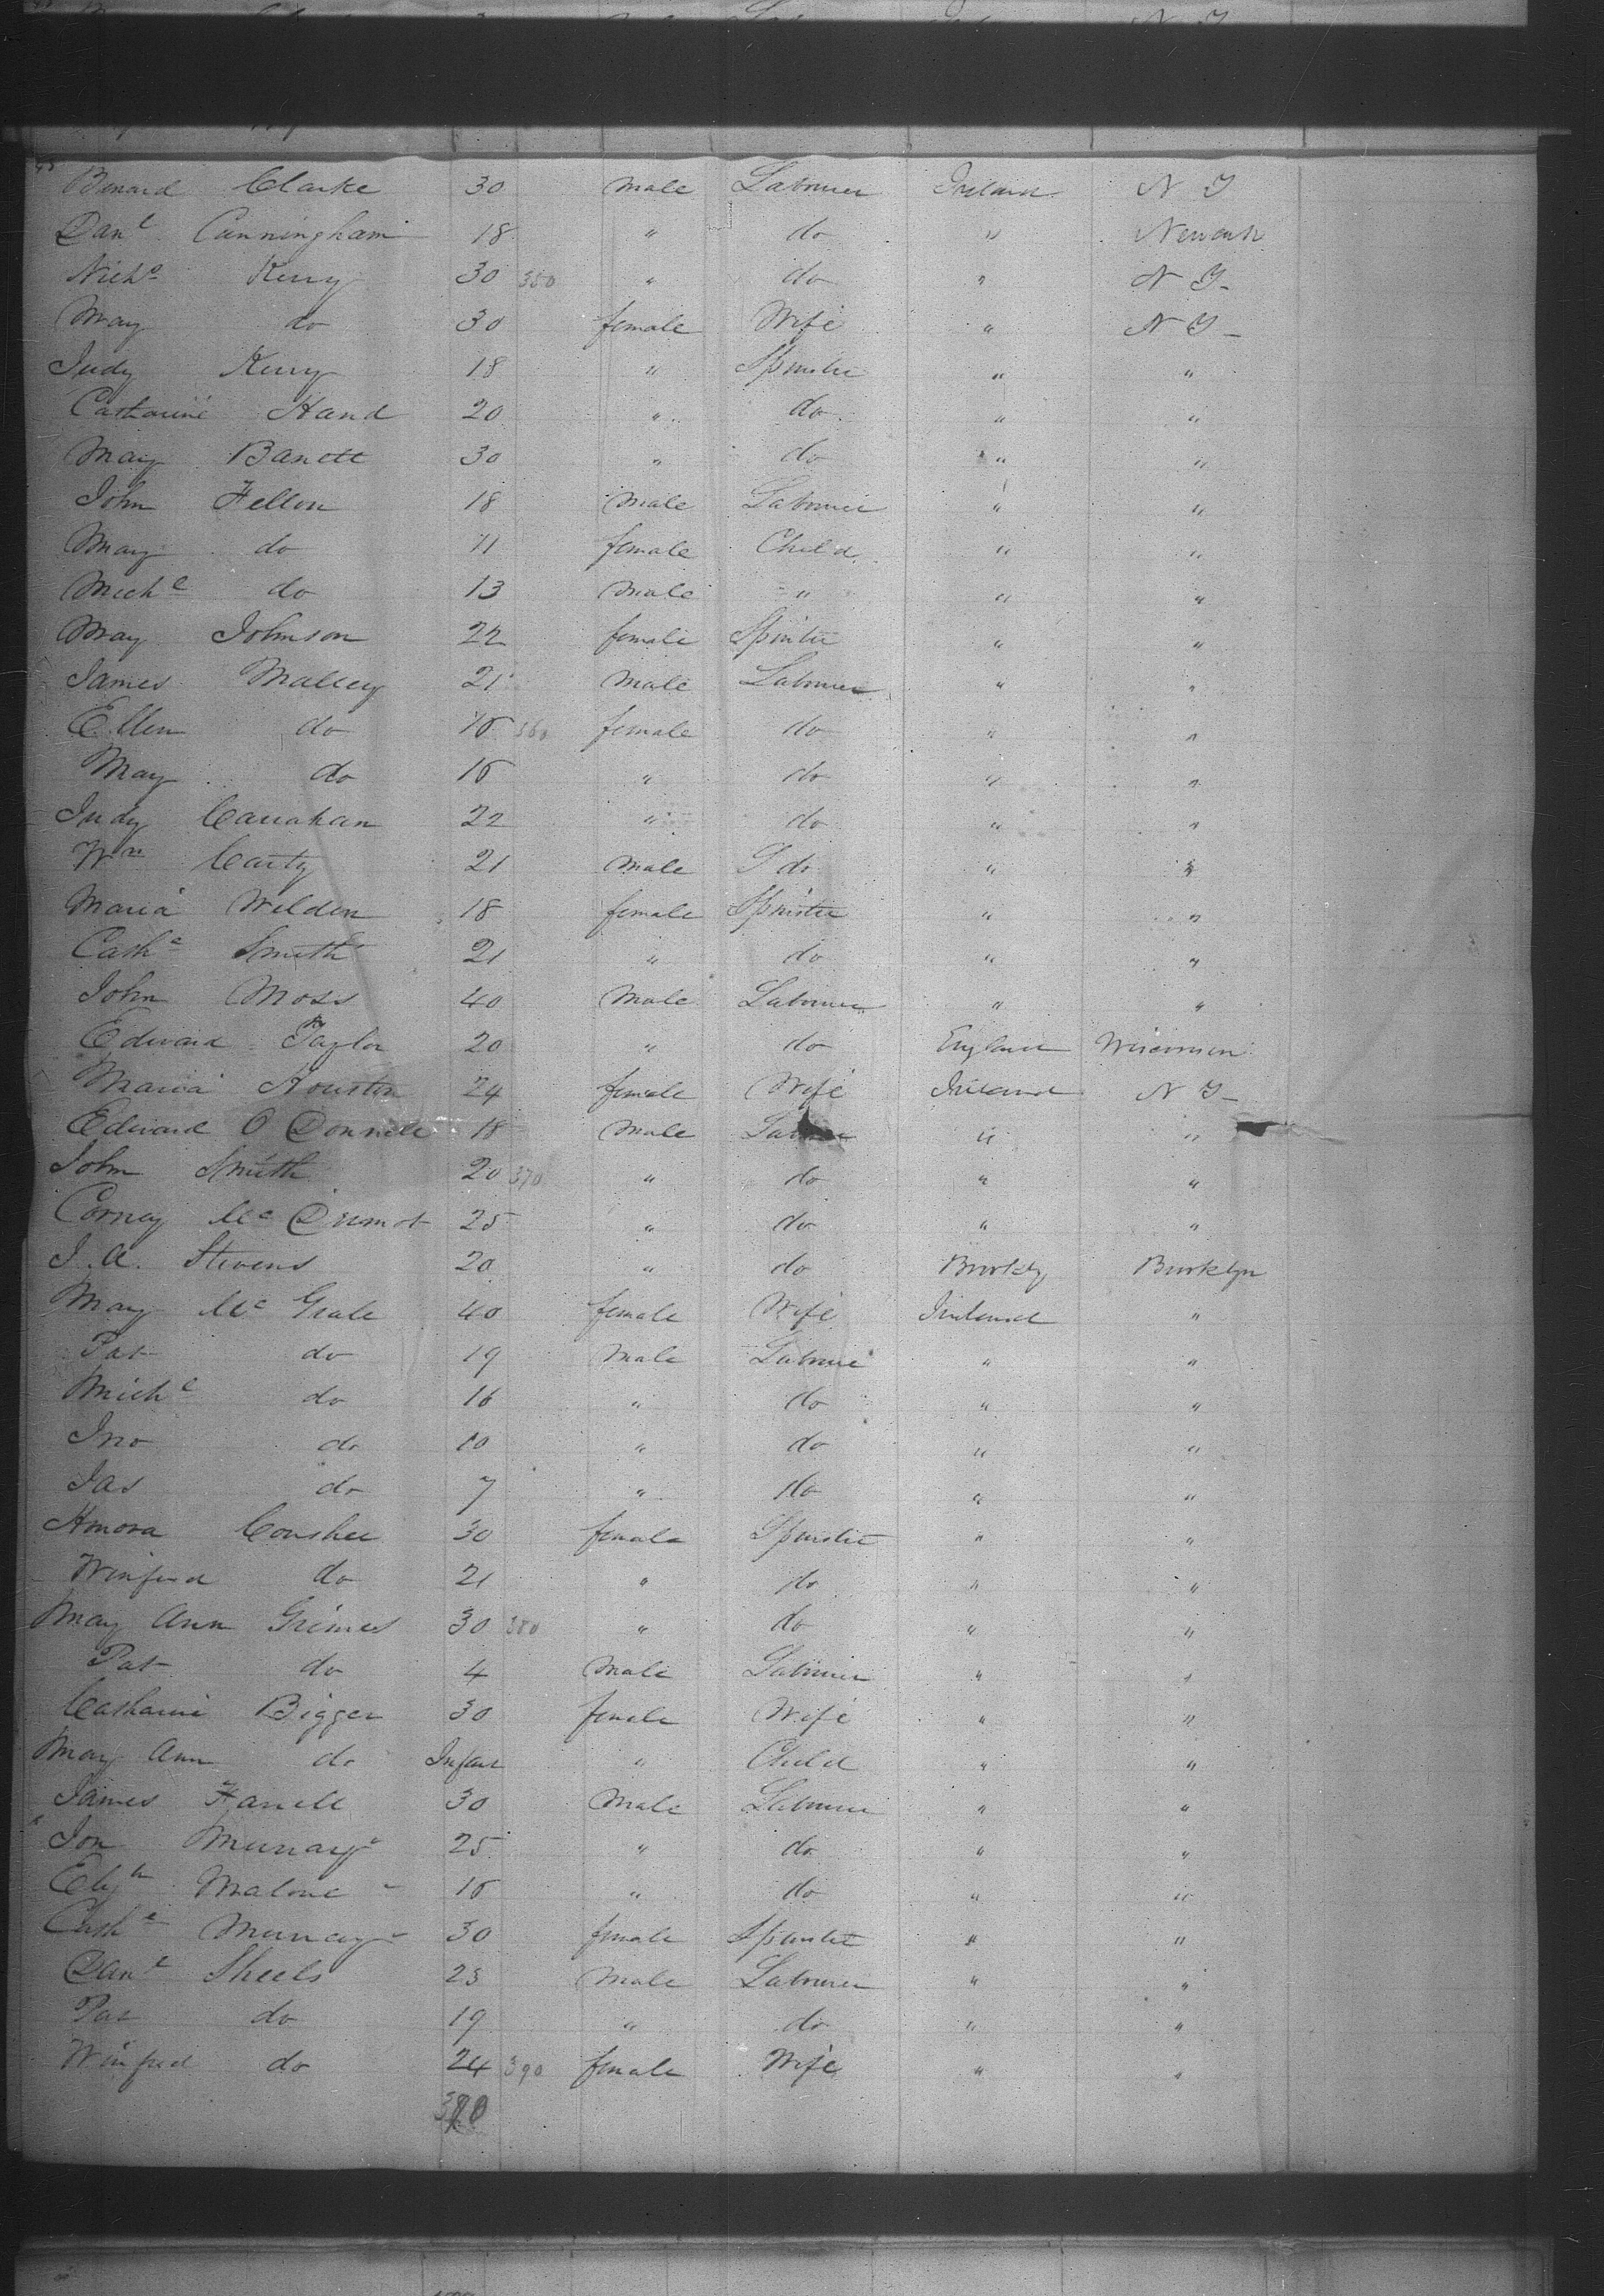 Benard Clarke 30 male Labourer Ireland N Y
Dan^l Cunningham 18 " do " Newark
Nich^o Kerry 30 350 " do " N Y-
Mary do 30 female Wife " N Y-
Judy Kerry 18 " Spinster " "
Catharine Hand 20 " do " "
Mary Barrett 30 " do " "
John Fellon 18 Male Labourer " "
Mary do 11 female Child " "
Mich^l do 13 Male " " "
Mary Johnson 22 female Spinster " "
James Malley 21 Male Labourer " "
Ellen do 16 360 female do " "
Mary do 16 " do " "
Judy Canahan 22 " do " "
W^m Carty 21 Male do " "
Maria Weldon 18 female Spinster " "
Cath^e Smith 21 " do " "
John Moss 40 Male Labourer " "
Edward Taylor 20 " do England Wisconsin
Maria Houston 24 female Wife Ireland N Y-
Edward O Donnell 18 Male Labourer " "
John Smith 20 370 " do " "
Corney Mc Dermot 25 " do " "
J. A. Stevens 20 " do Brooklyn Brooklyn
Mary Mc Grale 40 female Wife Ireland "
Pat do 19 Male Labourer " "
Mich^l do 16 " do " "
Jno do 10 " do " "
Jas do 7 " do " "
Honora Conshee 30 female Spinster " "
Winfred do 21 " do " "
Mary Ann Grimes 30 380 " do " "
Pat do 4 Male Labourer " "
Catharine Bigger 30 female Wife " "
Mary Ann do Infant " Child " "
James Farrell 30 Male Labourer " "
Jon Murray 25 " do " "
Malone 16 " do " "
Cath^e Murray 30 female Spinster " "
Dan^l Sheels 23 Male Labourer " "
Pat do 19 " do " "
Winfred do 24 390 female Wife " "